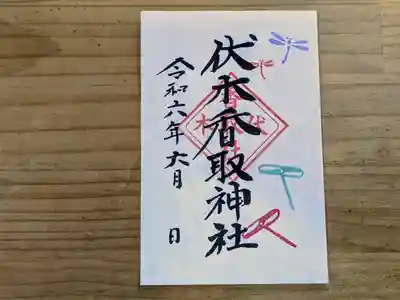 伏木香取神社
令和六年六月 日